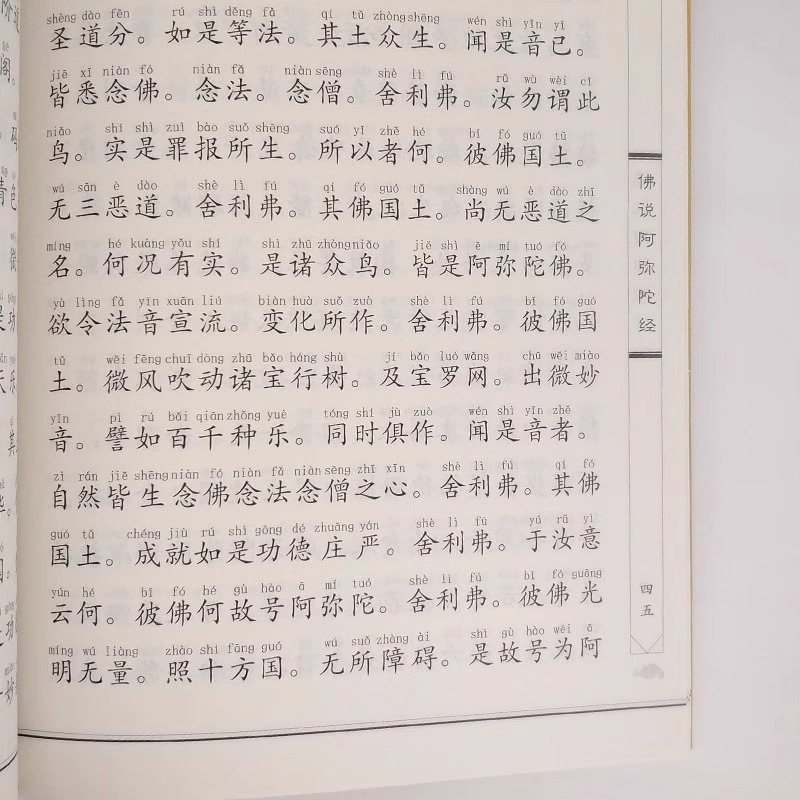 shèng dào fēn rú shì děng fǎ qí tǔ zhòng shēng wén shì yīn yǐ
圣道分。如是等法。其土众生。闻是音已。
jiē xī niàn fó niàn fǎ niàn sēng shè lì fú rǔ wù wèi cǐ
皆悉念佛。念法。念僧。舍利弗。汝勿谓此
niǎo shí shì zuì bào suǒ shēng suó yǐ zhě hé bǐ fó guó tǔ
鸟。实是罪报所生。所以者何。彼佛国土。
wú sān è dào shè lì fú qí fó guó tǔ shàng wú è dào zhī
无三恶道。舍利弗。其佛国土。尚无恶道之
míng hé kuàng yǒu shí shì zhū zhòng niǎo jiē shì ē mí tuó fó
名。何况有实。是诸众鸟。皆是阿弥陀佛。
yù lìng fǎ yīn xuān liú biàn huà suǒ zuò shè lì fú bǐ fó guó
欲令法音宣流。变化所作。舍利弗。彼佛国
tǔ wēi fēng chuī dòng zhū bǎo háng shù jí bǎo luó wǎng chū wēi miào
土。微风吹动诸宝行树。及宝罗网。出微妙
yīn pì rú bǎi qiān zhǒng yuè tóng shí jù zuò wén shì yīn zhě
音。譬如百千种乐。同时俱作。闻是音者。
zì rán jiē shēng niàn fó niàn fǎ niàn sēng zhī xīn shè lì fú qí fó
自然皆生念佛念法念僧之心。舍利弗。其佛
guó tǔ chéng jiù rú shì gōng dé zhuāng yán shè lì fú yú rǔ yì
国土。成就如是功德庄严。舍利弗。于汝意
yún hé bǐ fó hé gù hào ā mí tuó shè lì fú bǐ fó guāng
云何。彼佛何故号阿弥陀。舍利弗。彼佛光
míng wú liàng zhào shí fāng guó wú suǒ zhàng ài shì gù hào wéi ā
明无量。照十方国。无所障碍。是故号为阿
佛说阿弥陀经
四五